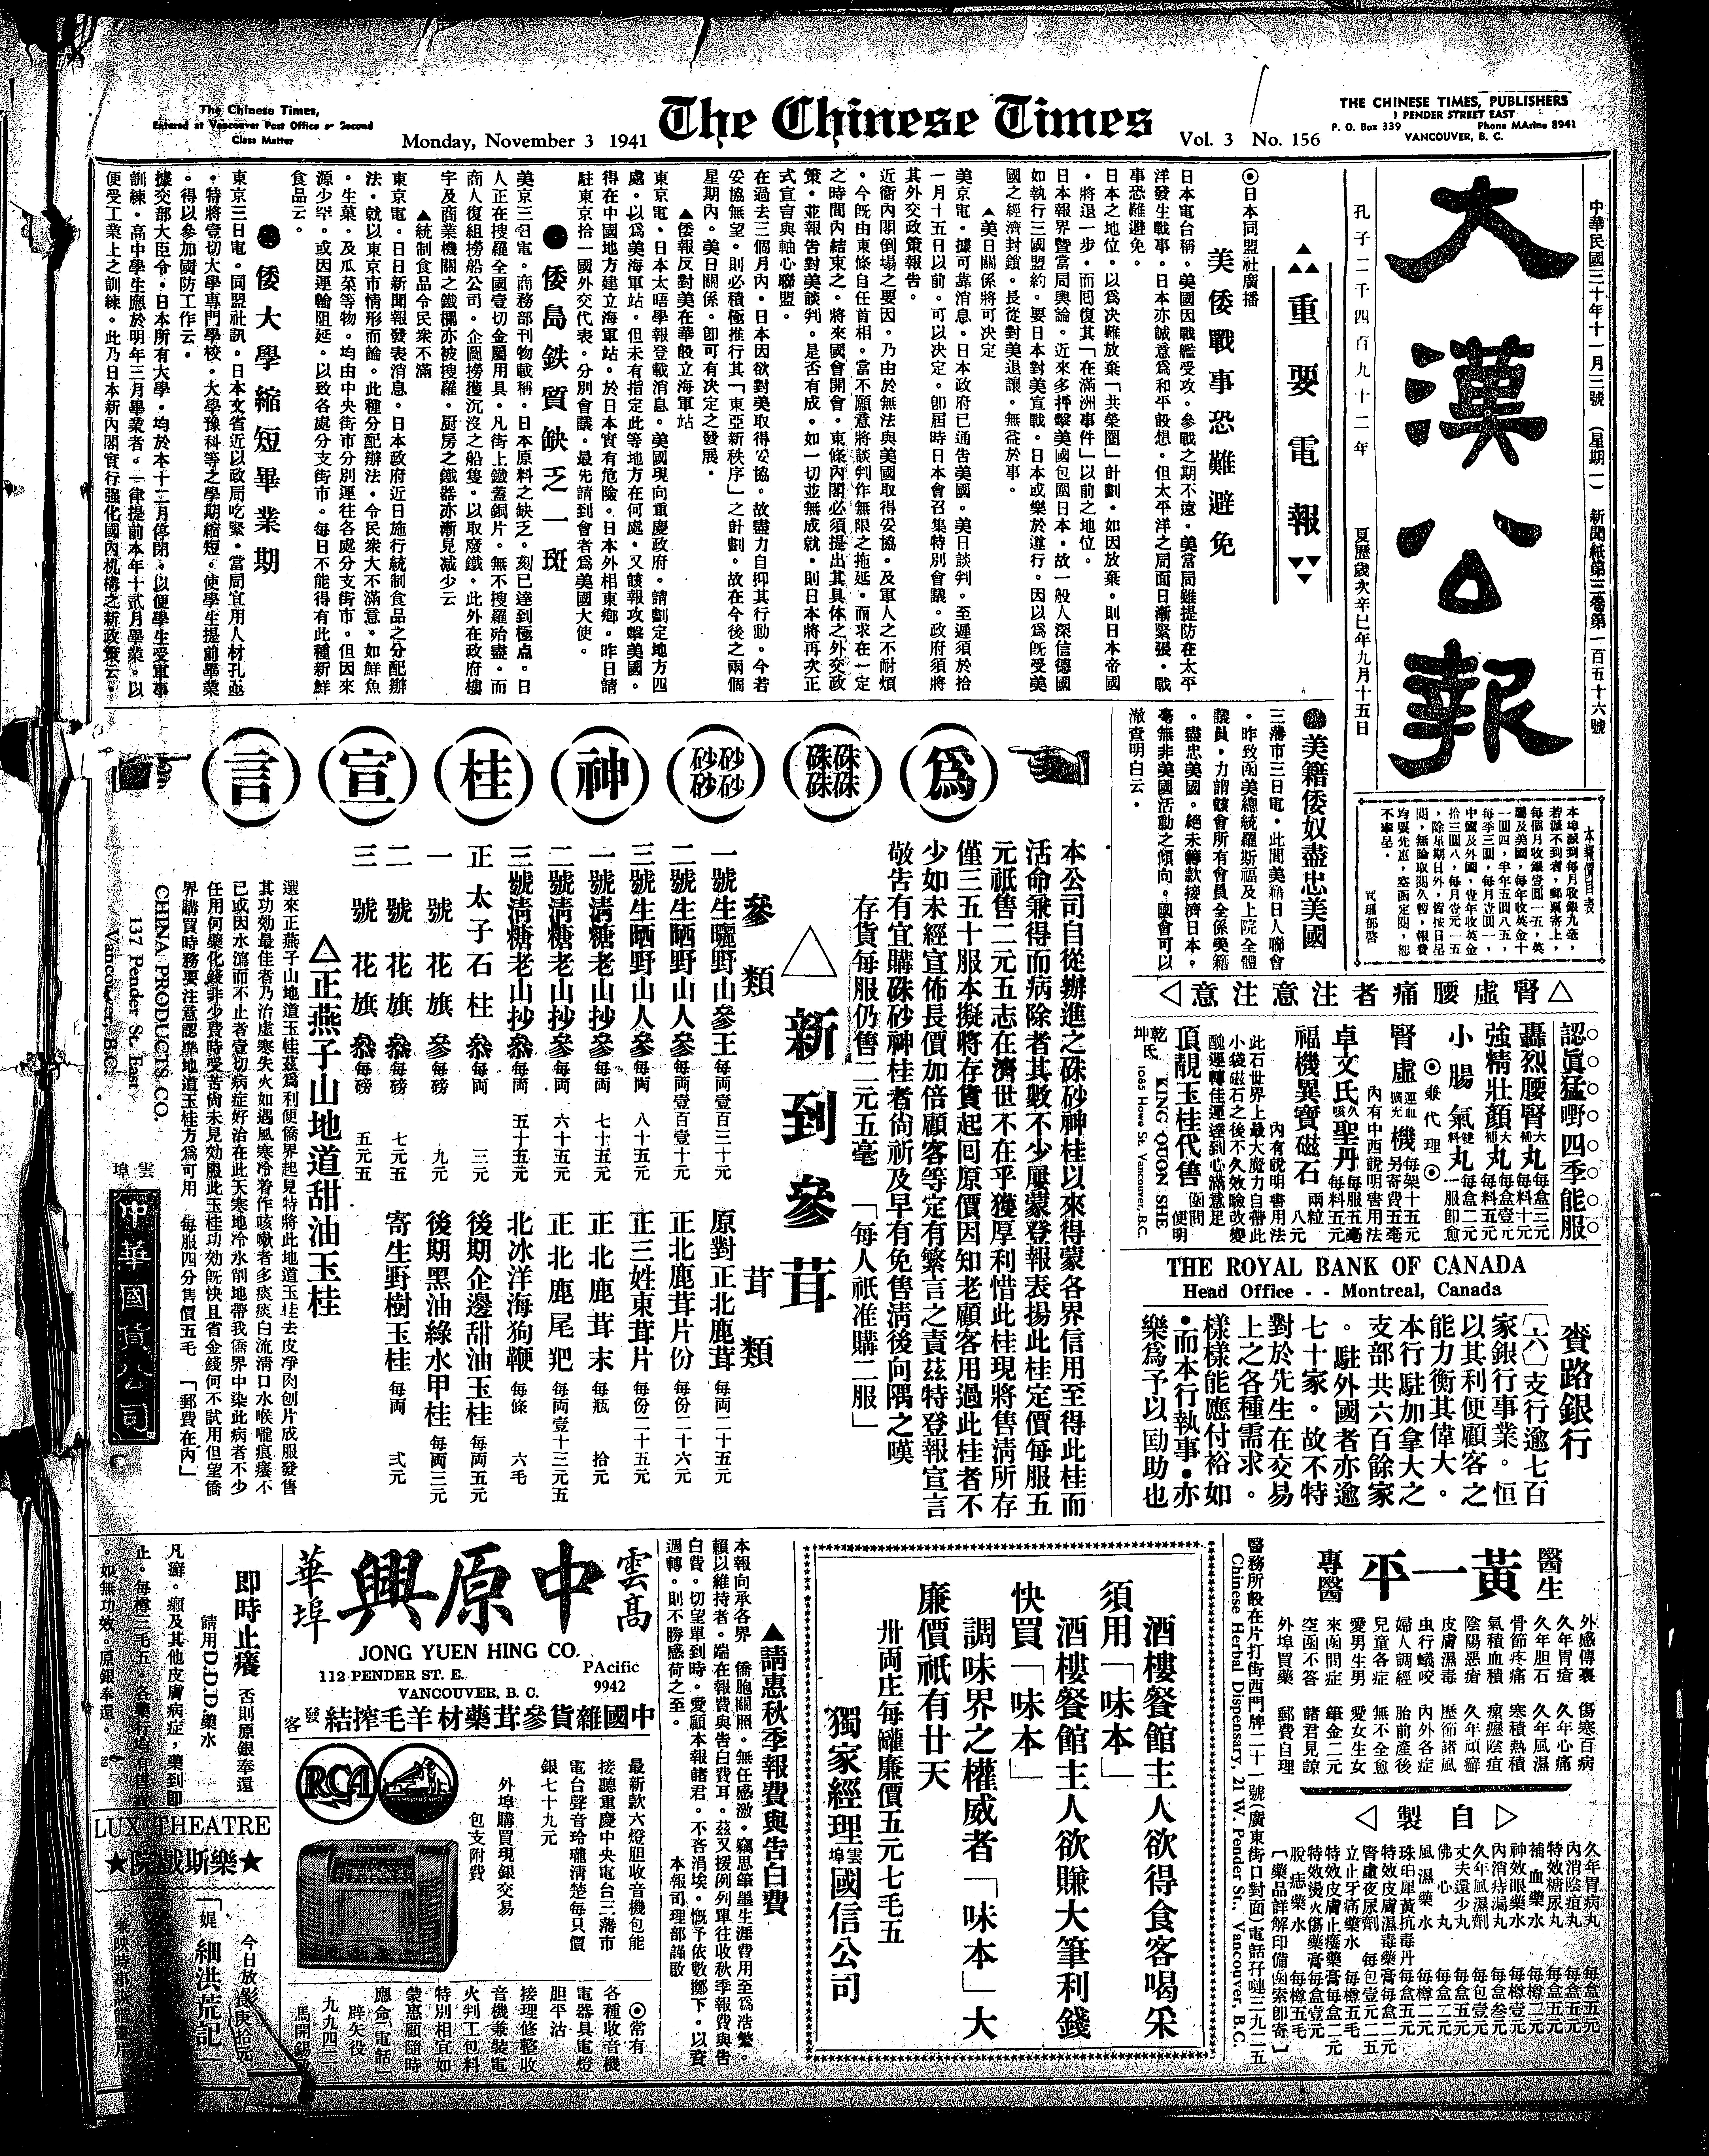 The Chinese Times,
Entered at Vancouver Post Office as Second
Class Matter
Monday, November 3 1941
The Chinese Times
Vol. 3 No. 156
THE CHINESE TIMES, PUBLISHERS
1 PENDER STREET EAST
P. O. Box 339 Phone MArine 8941
VANCOUVER, B. C.
中華民國三十年十一月三號 (星期一) 新聞紙第三卷第一百五十六號
大漢公報
孔子二千四百九十二年 夏歷歲次辛巳年九月十五日
重要電報
◎日本同盟社廣播
美倭戰事恐難避免
日本電台稱。美國因戰艦受攻。參戰之期不遠。美當局雖提防在太平
洋發生戰事。日本亦誠意爲和平設想。但太平洋之局面日漸緊張。戰
事恐難避免。
日本之地位。以爲决難放棄「共榮圈」計劃。如因放棄。則日本帝國
。將退一步。而囘復其「在滿洲事件」以前之地位。
日本報界暨當局輿論。近來多抨擊美國包圍日本。故一般人深信德國
如執行三國盟約。要日本對美宣戰。日本或樂於遵行。因以爲旣受美
國之經濟封鎖。長從對美退讓。無益於事。
▲美日關係將可决定
美京電。據可靠消息。日本政府已通告美國。美日談判。至遲須於拾
一月十五日以前。可以决定。卽屆時日本會召集特別會議。政府須將
其外交政策報告。
近衞內閣倒塌之要因。乃由於無法與美國取得妥協。及軍人之不耐煩
。今旣由東條自任首相。當不願意將談判作無限之拖延。而求在一定
之時間內結束之。將來國會開會。東條內閣必須提出其具体之外交政
策。並報吿對美談判。是否有成。如一切並無成就。則日本將再次正
式宣言與軸心聯盟。
在過去三個月內。日本因欲對美取得妥協。故盡力自抑其行動。今若
妥協無望。則必積極推行其「東亞新秩序」之計劃。故在今後之兩個
星期內。美日關係。卽可有决定之發展。
▲倭報反對美在華設立海軍站
東京電。日本太晤學報登載消息。美國現向重慶政府。請劃定地方四
處。以爲美海軍站。但未有指定此等地方在何處。又該報攻擊美國。
得在中國地方建立海軍站。於日本實有危險。日本外相東鄕。昨日請
駐東京拾一國外交代表。分別會議。最先請到會者爲美國大使。
●倭島鉄質缺乏一斑
美京三日電。商務部刊物載稱。日本原料之缺乏。刻已達到極点。日
人正在搜羅全國壹切金屬用具。凡街上鐵蓋銅片。無不搜羅殆盡。而
商人復組撈船公司。企圖撈獲沉沒之船隻。以取廢鐵。此外在政府樓
宇及商業機關之鐵欄亦被搜羅。厨房之鐵器亦漸見减少云
▲統制食品令民衆不滿
東京電。日日新聞報發表消息。日本政府近日施行統制食品之分配辦
法。就以東京市情形而論。此種分配辦法。令民衆大不滿意。如鮮魚
。生菓。及瓜菜等物。均由中央街市分別運往各處分支街市。但因來
源少罕。或因運輸阻延。以致各處分支街市。每日不能得有此種新鮮
食品云。
●倭大學縮短畢業期
東京三日電。同盟社訊。日本文省近以政局吃緊。當局宜用人材孔亟
。特將壹切大學專門學校。大學豫科等之學期縮短。使學生提前畢業
。得以參加國防工作云。
據交部大臣令。日本所有大學。均於本十二月停閉。以便學生受軍事
訓練。高中學生應於明年三月畢業者。一律提前本年十貳月畢業。以
便受工業上之訓練。此乃日本新內閣實行强化國內机構之新政策云。
●美籍倭奴盡忠美國
三藩市三日電。此間美籍日人聯會
。昨致函美總統羅斯福及上院全體
議員。力謂該會所有會員全係美籍
。盡忠美國。絕未籌款接濟日本。
毫無非美國活動之傾向。國會可以
澈查明白云。
本報價目表
本埠派到每月收銀九毫,
若派不到者,郵票寄上,
每個月收銀壹圓一五,英
屬及美國,每年收英金十
一圓四,半年五圓八五,
每季三圓,每月壹圓一,
中國及外國,壹年收英金
拾三圓八,每月壹元一五
,除星期日外,皆按日呈
閱,無論取閱久暫,報費
均要先惠,空函定閱,恕
不奉呈。
司理部啓
爲硃砂神桂宣言
本公司自從辦進之硃砂神桂以來得蒙各界信用至得此桂而
活命兼得而病除者其數不少屢蒙登報表揚此桂定價每服五
元祇售二元五志在濟世不在乎獲厚利惜此桂現將售淸所存
僅三五十服本擬將存貨起回原價因知老顧客用過此桂者不
少如未經宣佈長價加倍顧客等定有繁言之責茲特登報宣言
敬告有宜購硃砂神桂者尙祈及早有免售淸後向隅之嘆
存貨每服仍售二元五毫 「每人祇准購二服」
△新到參茸
參類 茸類
一號生曬野山參王 每両壹百三十元
二號生晒野山人參 每両壹百壹十元
三號生晒野山人參 每両 八十五元
一號淸糖老山抄參 每両 七十五元
二號淸糖老山抄參 每両 六十五元
三號淸糖老山抄叅 每両 五十五元
正太子石柱叅 每両 三元
一號花旗參 每磅 九元
二號花旗叅 每磅 七元五
三號花旗叅 每磅 五元五
原對正北鹿茸 每両二十五元
正北鹿茸片份 每份二十六元
正三姓東茸片 每份二十五元
正北鹿茸末 每瓶 拾元
正北鹿尾羓 每両壹十三元五
北冰洋海狗鞭 每條 六毛
後期企邊甜油玉桂 每両五元
後期黑油綠水甲桂 每両三元
寄生野樹玉桂 每両 弍元
△正燕子山地道甜油玉桂
選來正燕子山地道玉桂茲爲利便僑界起見特將此地道玉桂去皮凈肉刨片成服發售
其功効最佳者乃治虛寒失火如遇風寒冷着作咳嗽者多痰痰白流淸口水喉嚨痕癢不
已或因水瀉而不止者壹切病症好治在此天寒地冷水削地帶我僑界中染此病者不少
任用何藥化錢非少費時受苦尙未見効服此玉桂功効旣快且省金錢何不試用但望僑
界購買時務要注意認準地道玉桂方爲可用 每服四分售價五毛 「郵費在內」
CHINA PRODUCTS CO.
137 Pender St. East
Vancouver, B.C.
雲埠
中華國貨公司
△腎虛腰痛者注意注意▷
認眞猛嘢四季能服
轟烈腰腎大補丸 每盒三元 每料十元
強精壯顏大補丸 每盒壹元 每料五元
小腸氣丸 每盒二元 一服卽愈
◎兼代理◎
腎虛機 每架十五元 另寄費五毫
內有中西說明書用法
卓文氏聖丹 每服五毫 每料五元
福機異寶磁石 兩粒八元
內有說明書用法
此石世界上最大魔力自帶此
小袋磁石之後不久效驗改變
醜運轉佳運達到心滿意足
頂靚玉桂代售 函問便明
乾坤氏 KING QUON SHE
1085 Howe St. Vancouver, B.C.
THE ROYAL BANK OF CANADA
Head Office - - Montreal, Canada
賚路銀行
〔六〕支行逾七百
家銀行事業。恒
以其利便顧客之
能力衡其偉大。
本行駐加拿大之
支部共六百餘家
。駐外國者亦逾
七十家。故不特
對於先生在交易
上之各種需求。
樣樣能應付裕如
。而本行執事。亦
樂爲予以囘助也
醫生
黃一平
專醫
外感傳裏 傷寒百病
久年胃瘡 久年心痛
久年胆石 久年風濕
骨節疼痛 寒積熱積
氣積血積 瘰癧陰疽
陰陽惡瘡 久年頑癬
皮膚濕毒 歷節諸風
虫行蟻咬 內外各症
婦人調經 胎前產後
兒童各症 無不全愈
愛男生男 愛女生女
來函問症 筆金二元
空函不答 諸君見諒
外埠買藥 郵費自理
◁自製▷
久年胃病丸 每盒五元
內消陰疽丸 每盒五元
特效糖尿丸 每盒五元
補血藥水 每樽二元
神效眼藥水 每樽壹元
內消痔漏丸 每盒叁元
久年風濕劑 每包壹元
丈夫還少丸 每盒五元
佛心丸 每盒二元
風濕藥水 每樽二元
珠珀犀黃抗毒丹 每盒五元
特效皮膚濕毒藥膏 每盒二元
腎虛夜尿劑 每包壹元二五
立止牙痛藥水 每樽五毛
特效皮膚止癢藥膏 每盒二元
特效燙火傷藥膏 每盒壹元
脫痣藥水 每樽五毛
〔藥品詳解印備函索卽寄〕
醫務所設在片打街西門牌二十一號(廣東街口對面)電話孖嗹三九二五
Chinese Herbal Dispensary, 21 W. Pender St., Vancouver, B.C.
酒樓餐館主人欲得食客喝采
須用「味本」
酒樓餐館主人欲賺大筆利錢
快買「味本」
調味界之權威者「味本」大
廉價祇有廿天
卅両庄每罐廉價五元七毛五
獨家經理雲埠國信公司
▲請惠秋季報費與告白費
本報向承各界 僑胞關照。無任感激。竊思筆墨生涯費用至爲浩繁。
賴以維持者。端在報費與告白費耳。茲又援例列單往收秋季報費與告
白費。切望單到時。愛顧本報諸君。不吝消埃。慨予依數擲下。以資
週轉。則不勝感荷之至。 本報司理部謹啟
雲高華埠
中原興
JONG YUEN HING CO.
112 PENDER ST. E.
VANCOUVER, B. C.
PAcific
9942
中國雜貨參茸藥材羊毛搾結發客
RCA
最新款六燈胆收音機包能
接聽重慶中央電台三藩市
電台聲音玲瓏淸楚每只價
銀七十九元
外埠購買現銀交易
包支附費
◎常有
各種收音機
電器具電燈
胆平沽
接理修整收
音機兼裝電
火判工包料
特別相宜如
蒙惠顧隨時
應命「電話」
九九四二
馬開錫
卽時止癢 否則原銀奉還
請用D.D.D.藥水
凡癬。癩及其他皮膚病症,藥到卽
止。每樽三毛五。各藥行均有售賣
。如無功效。原銀奉還。
LUX THEATRE
★樂斯戲院★
今日放影
「娓細洪荒記」
兼映時事詼諧畫片